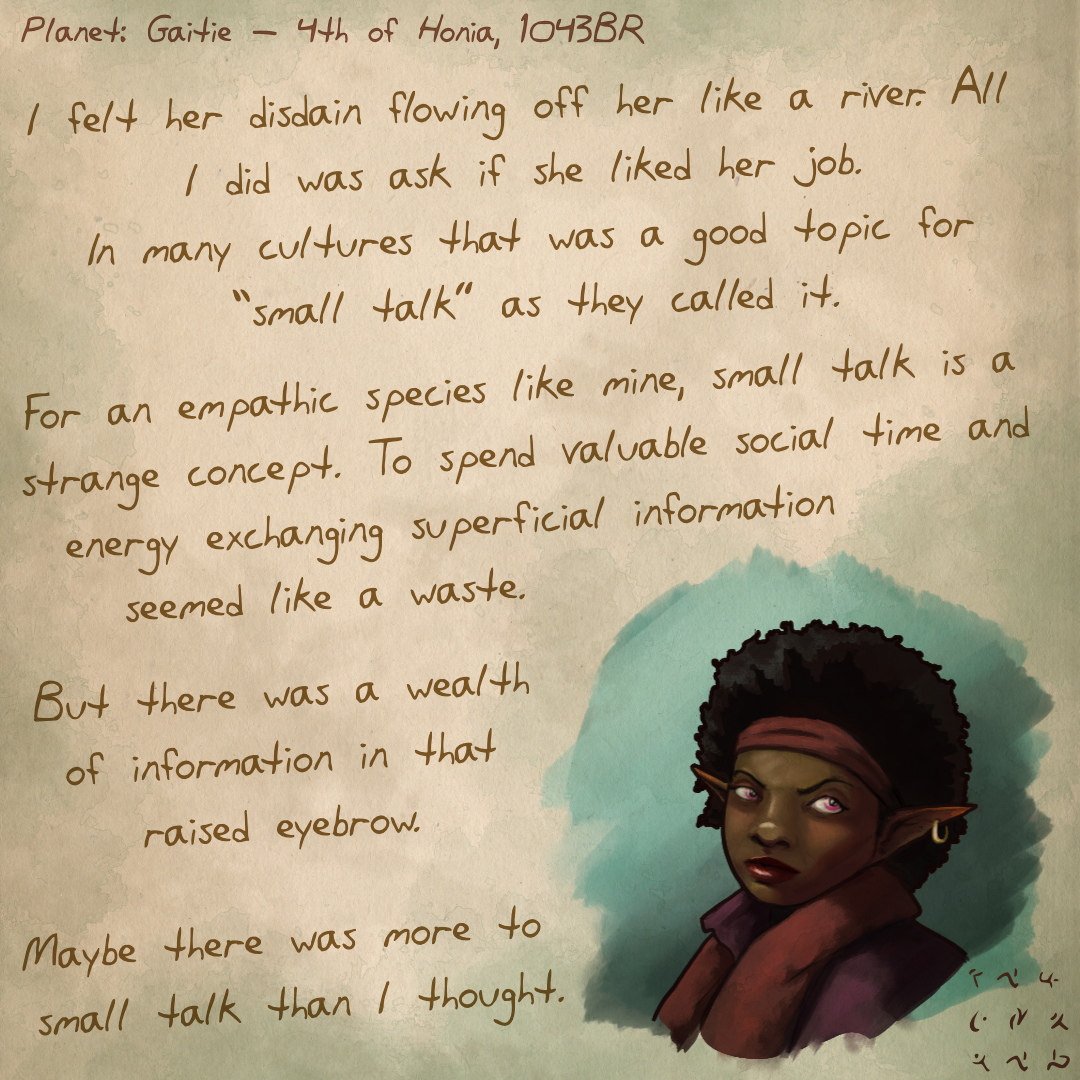 Planet: Gaitie — 4th of Honia, 1043BR
I felt her disdain flowing off her like a river. All
I did was ask if she liked her job.
In many cultures that was a good topic for
"small talk" as they called it.
For an empathic species like mine, small talk is a
strange concept. To spend valuable social time and
energy exchanging superficial information
seemed like a waste.
But there was a wealth
of information in that
raised eyebrow.
Maybe there was more to
small talk than I thought.